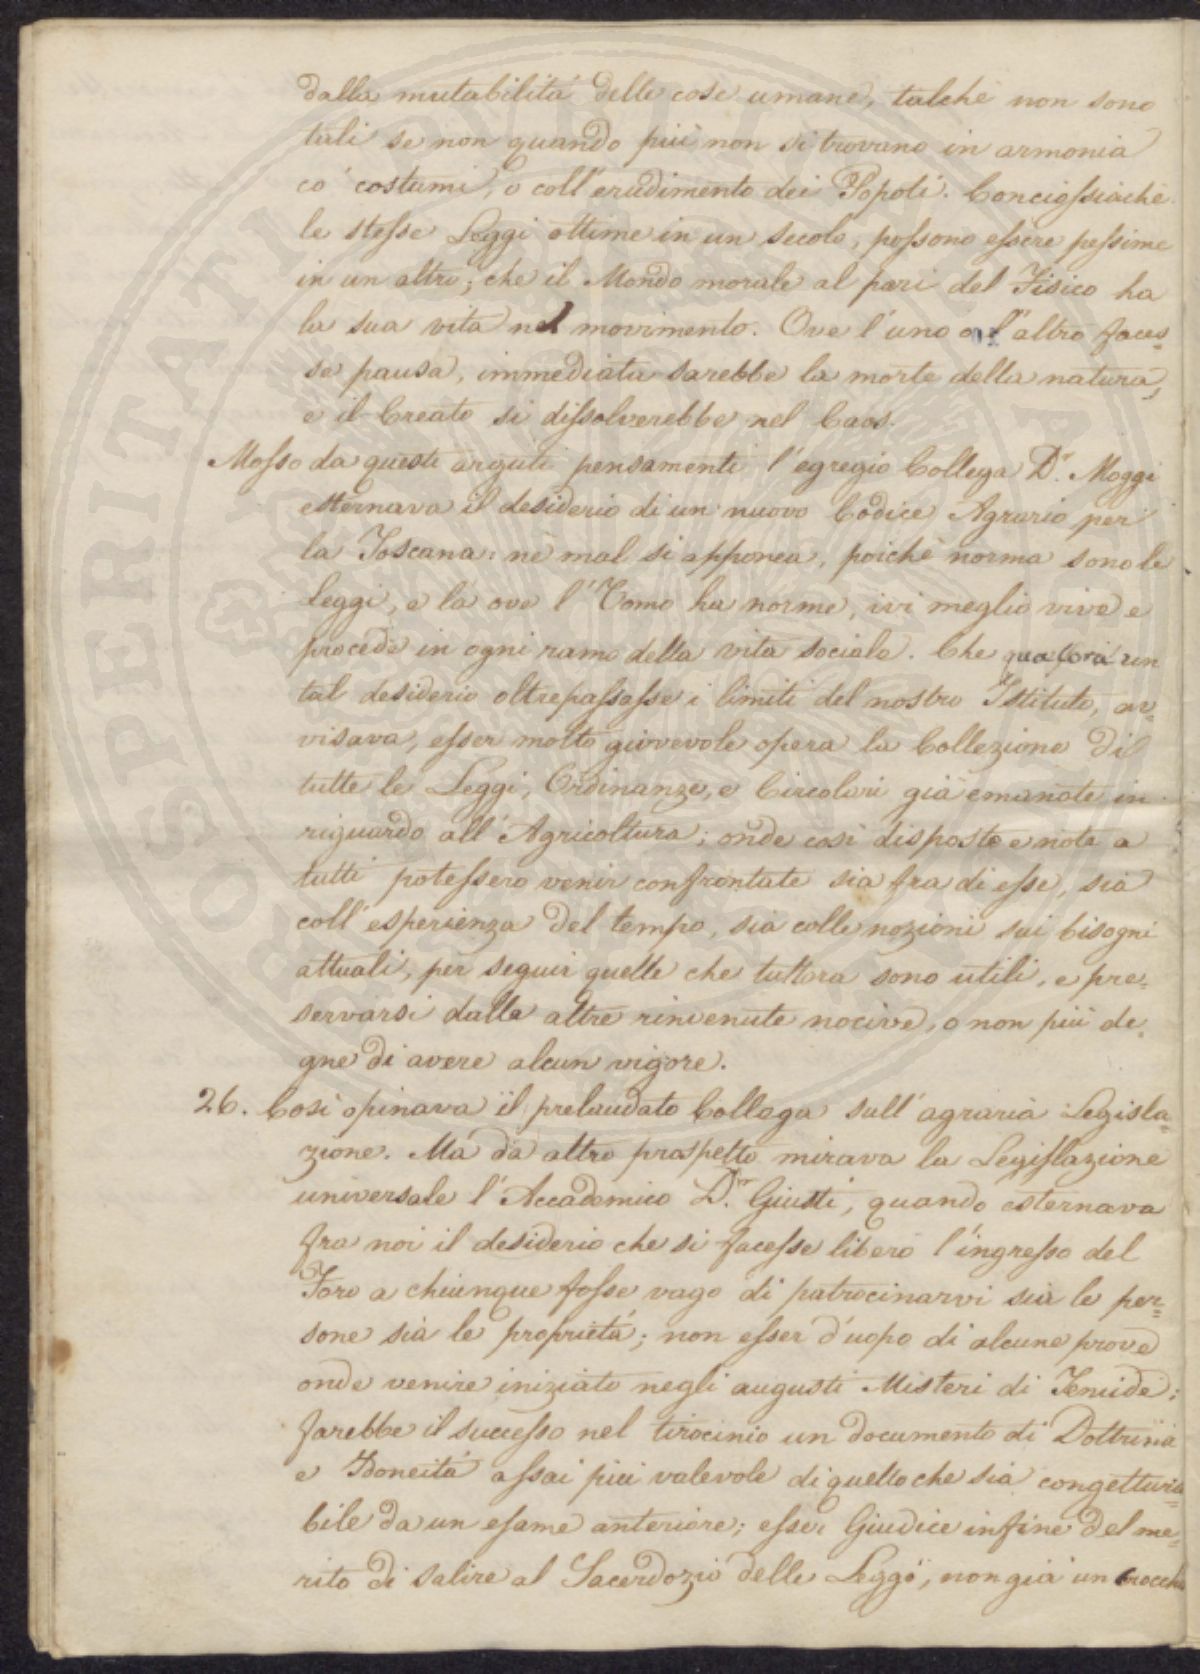 dalla mutabilità delle cose umane, talchè non sono
tali se non quando più non si trovano in armonia
co' costumi, o coll'erudimento dei Popoli. Conciossiachè
le stesse Leggi ottime in un secolo, possono essere pessime
in un altro; che il Mondo morale al pari del Fisico ha
la sua vita nel movimento. Ove l'uno o l'altro faces=
se pausa, immediata sarebbe la morte della natura,
e il Creato si dissolverebbe nel Caos.
Mosso da questi arguti pensamenti l'egregio Collega Dr. Moggi
esternava il desiderio di un nuovo Codice Agrario per
la Toscana: nè mal si apponea, poichè norma sono le
Leggi, e là ove l'Uomo ha norme, ivi meglio vive e
procede in ogni ramo della vita sociale. Che qualora un
tal desiderio oltrepassasse i limiti del nostro Istituto, av=
visava, esser molto giovevole opera la Collezione di
tutte le Leggi, Ordinanze, e Circolari già emanate in
riguardo all'Agricoltura; onde così disposte e note a
tutti potessero venir confrontate sia fra di esse, sia
coll'esperienza del tempo, sia colle nozioni sui bisogni
attuali, per seguir quelle che tuttora sono utili, e pre=
servarsi dalle altre rinvenute nocive, o non più de=
gne di avere alcun vigore.
26. Così opinava il prelaudato Collega sull'agraria Legisla=
zione. Ma da altro prospetto mirava la Legislazione
universale l'Accademico Dr. Giusti, quando esternava
fra noi il desiderio che si facesse libero l'ingresso del
Foro a chiunque fosse vago di patrocinarvi sia le per=
sone sia le proprietà; non esser d'uopo di alcune prove
onde venire iniziato negli augusti Misteri di Temide;
farebbe il successo nel tirocinio un documento di Dottrina
e Idoneità assai più valevole di quello che sia congettura=
bile da un esame anteriore; esser Giudice infine del me=
rito di salire al Sacerdozio delle Leggi, non già un crocchio
OSPERITATI